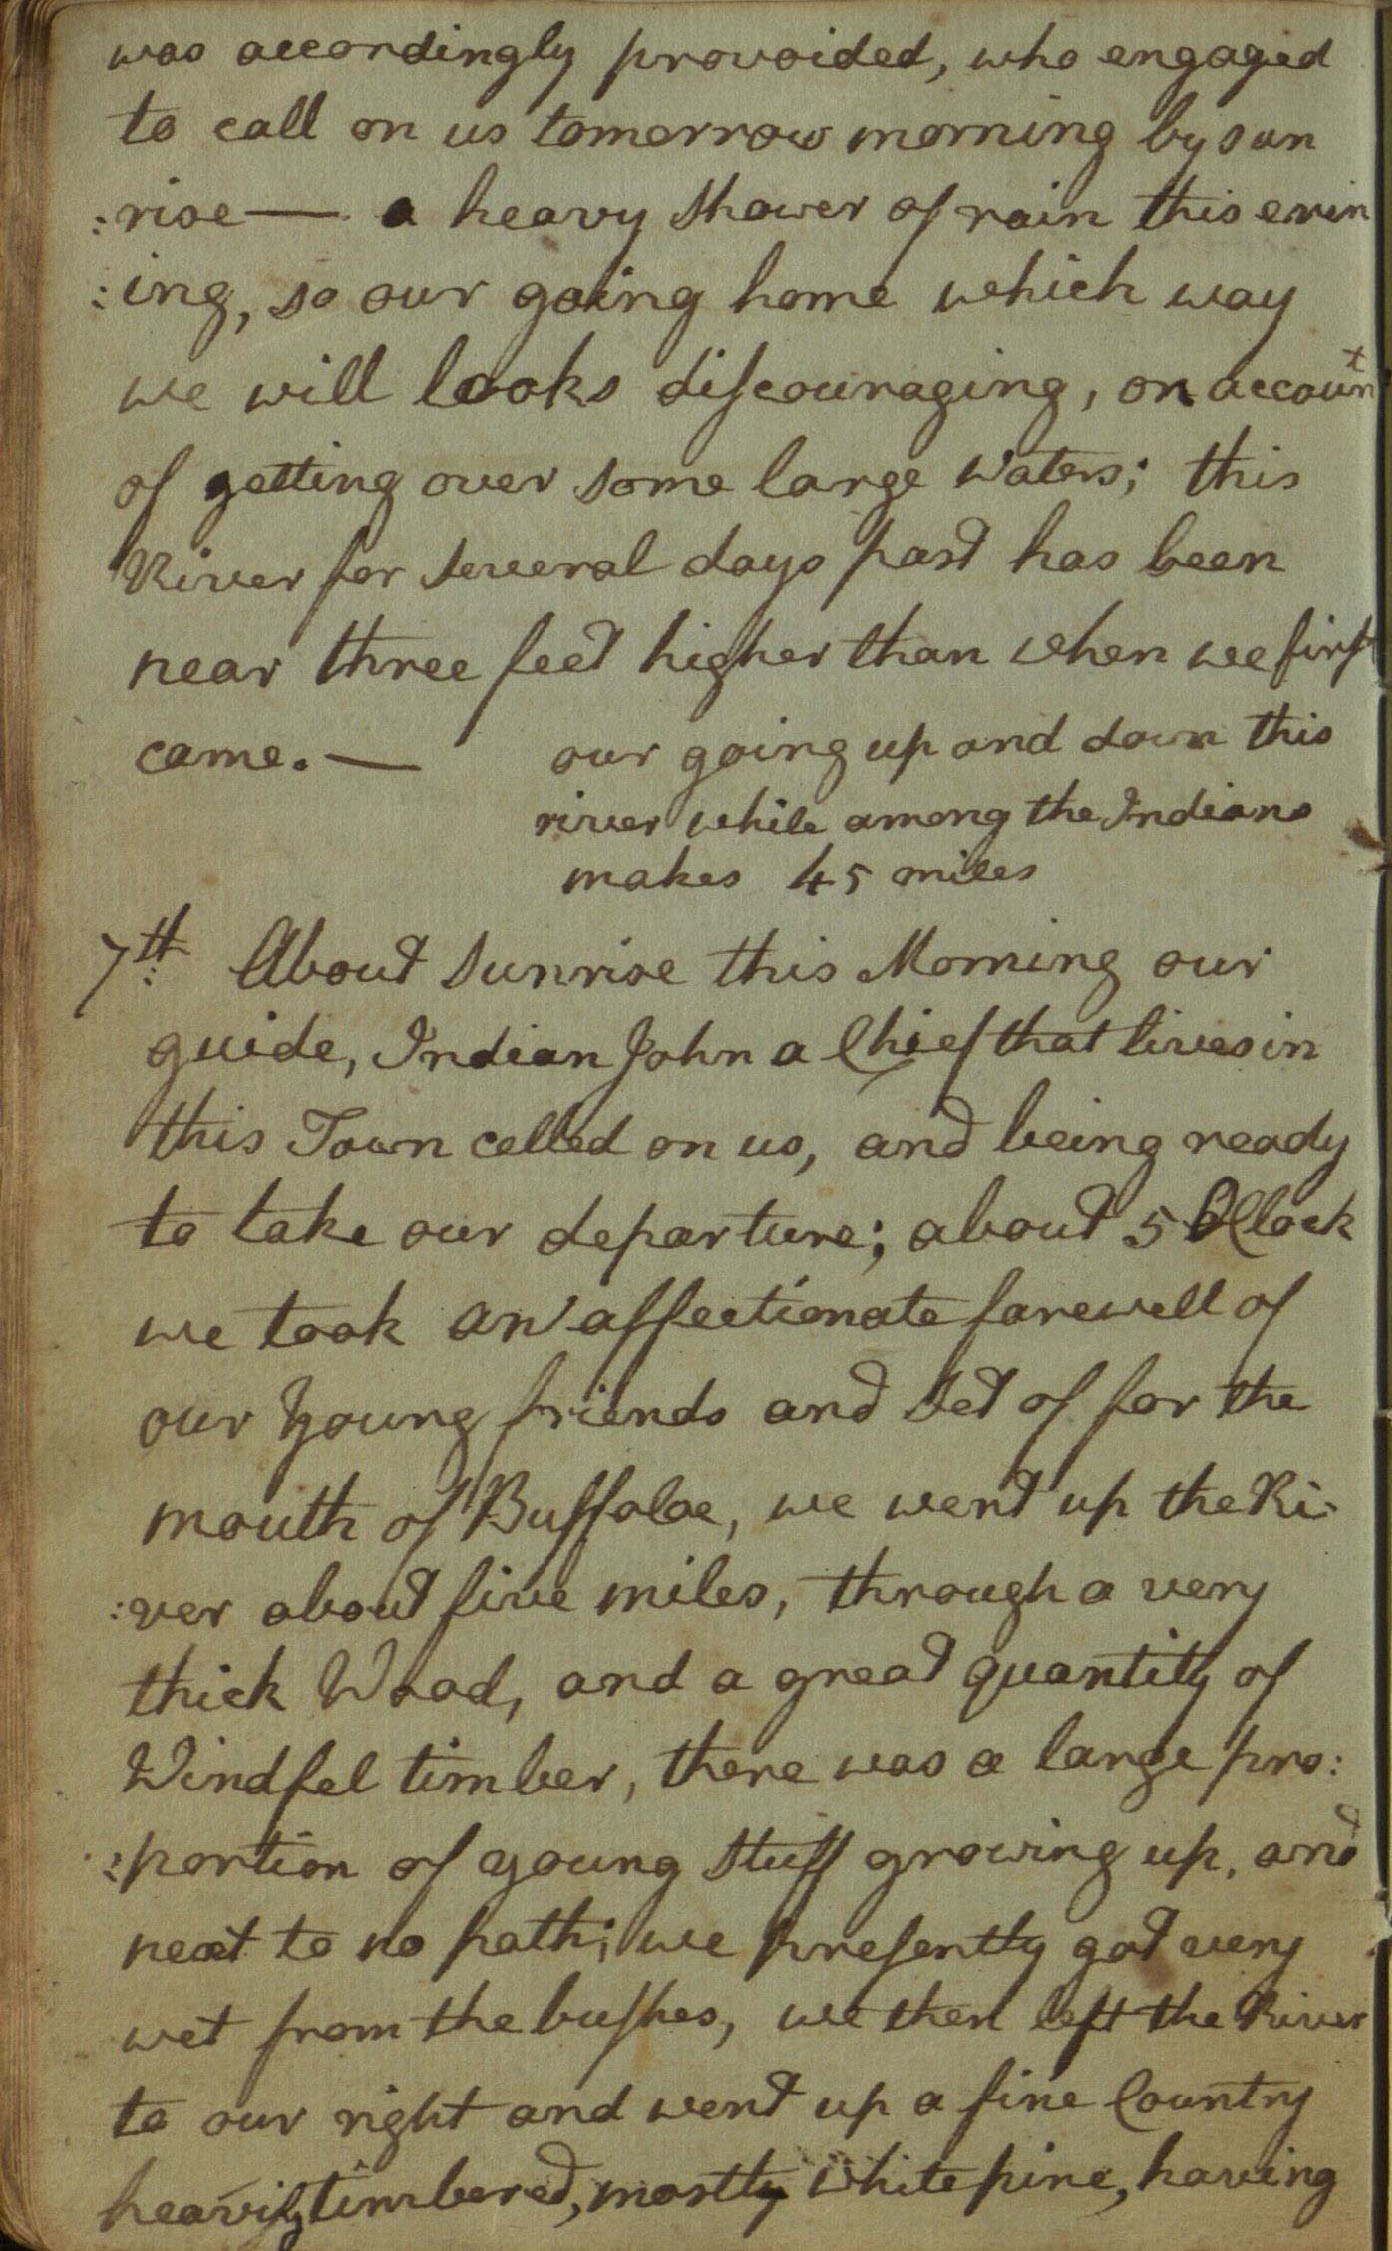 was accordingly provoided, who engaged
to call on us tomorrow morning by sun
:rise — a heavy shower of rain this evin
:ing, so our going home which way
we will looks discouraging, on account
of getting over some large waters; this
River for several days past has been
near three feet higher than when we first
came. — our going up and down this
river while among the Indians
makes 45 miles
7th: About sunrise this Morning our
guide, Indian John a Chief that lives in
this Town celled on us, and being ready
to take our departure; about 5 OClock
we took an affectionate farewell of
our Young friends and set of for the
mouth of Buffaloe, we went up the Ri:
:ver about five miles, through a very
thick Wood, and a great quantity of
Windfel timber, there was a large pro:
:portion of young stuff growing up, and
next to no path; we presently got very
wet from the bushes, we then left the River
to our right and went up a fine Country
heavily timbered, mostly white pine, having